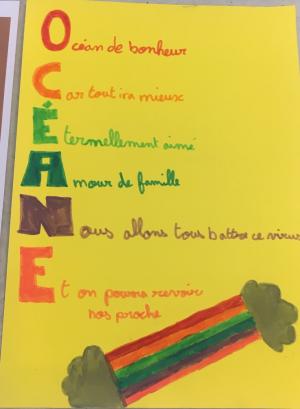 Océan de bonheur
Car tout ira mieux
Éternellement aimé
Amour de famille
Nous allons tous battre ce virus
Et on pourra revoir
nos proche